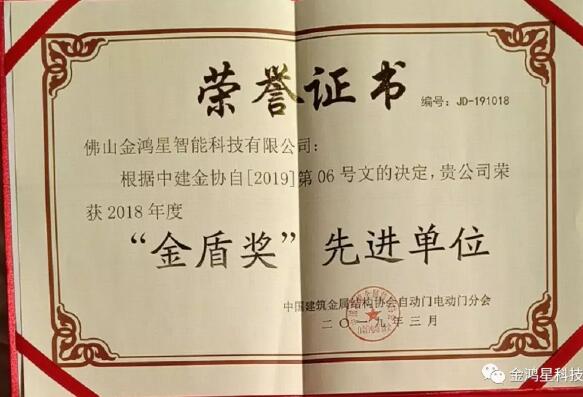 荣誉证书
编号：JD-191018
佛山金鸿星智能科技有限公司：
根据中建金协自[2019]第06号文的决定，贵公司荣
获2018年度
“金盾奖”先进单位
中国建筑金属结构协会自动门电动门分会
二〇一九年三月
金鸿星科技